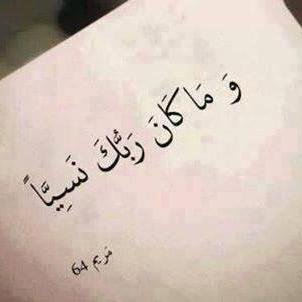 وَ مَا كَانَ رَبُّكَ نَسِيّاً
مريم 64